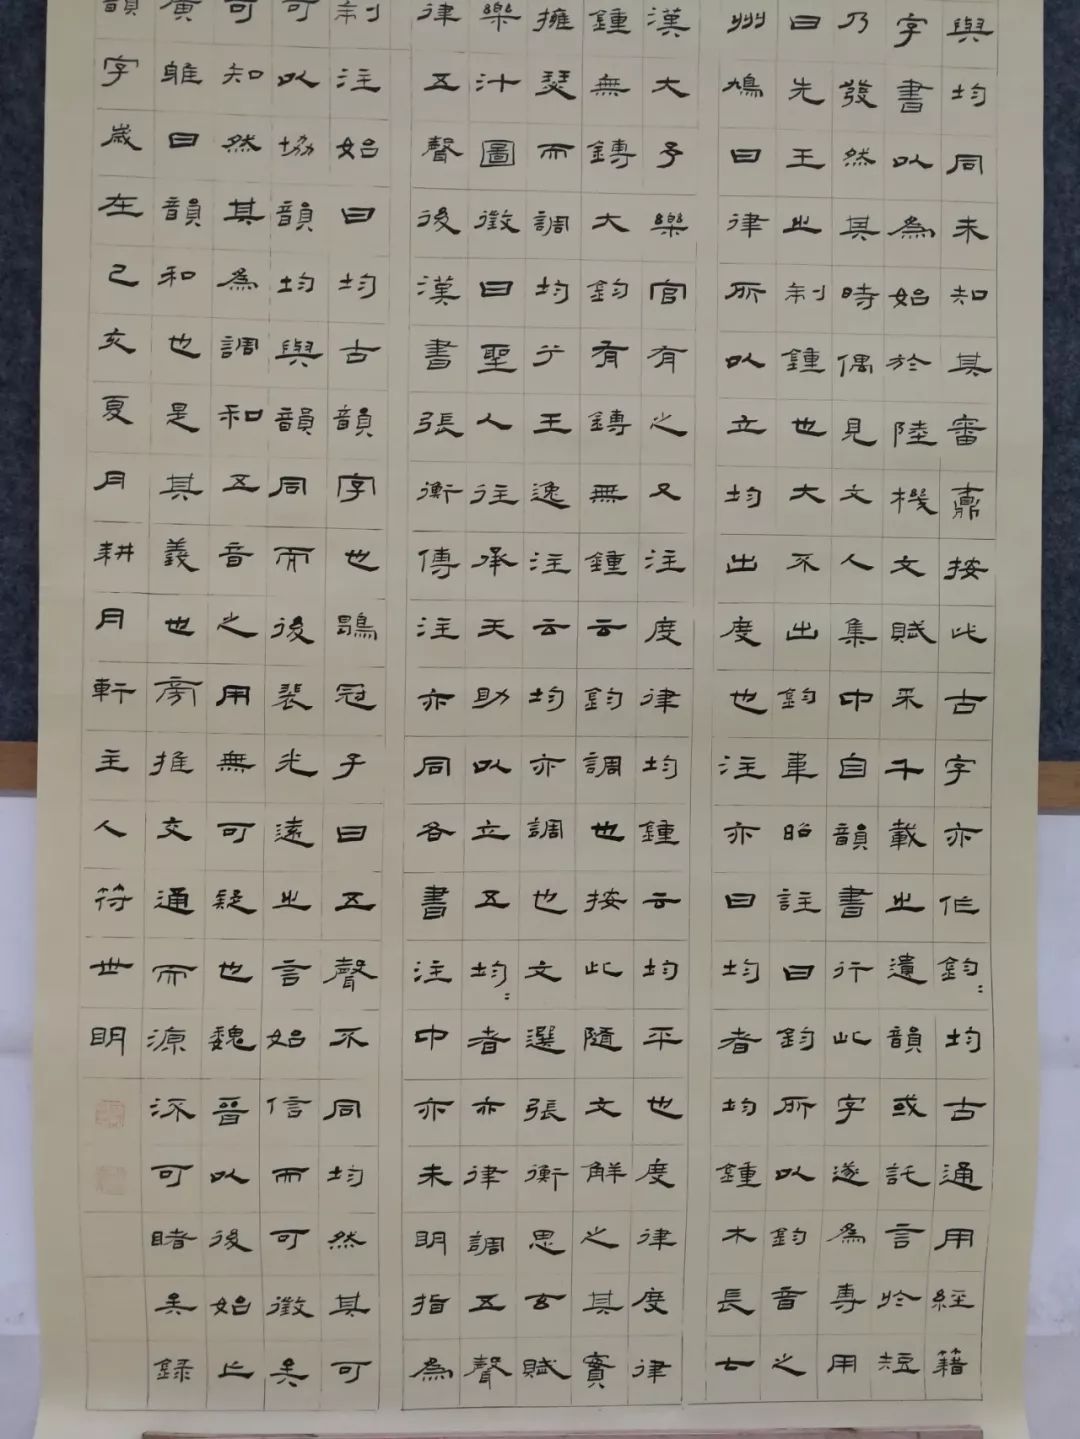 與均同未知其審鼒按此古字亦作鈞:均古通用經籍
字書以為始於陸機文賦采千載之遺韻或託言於短
乃發然其時偶見文人集中自韻書行此字遂為專用
曰先王之制鍾也大不出鈞韋昭註曰鈞所以鈞音之
州鳩曰律所以立均出度也注亦曰均者均鍾木長七
漢大予樂官有之又注度律均鍾云均平也度律度律
鍾無鏄大鈞有鏄無鍾云鈞調也按此隨文解之其實
擁瑟而調均兮王逸注云均亦調也文選張衡思玄賦
樂汁圖徵曰聖人往承天助以立五均:者亦律調五聲
律五聲後漢書張衡傳注亦同各書注中亦未明指為
制注始曰均古韻字也鶡冠子曰五聲不同均然其可
可以協韻均與韻同而後裴光遠之言始信而可徵矣
可知然其為調和五音之用無可疑也魏晉以後始上
廣雅曰韻和也是其義也旁推交通而源泝可睹矣錄
韻字歲在己亥夏月耕月軒主人符世明